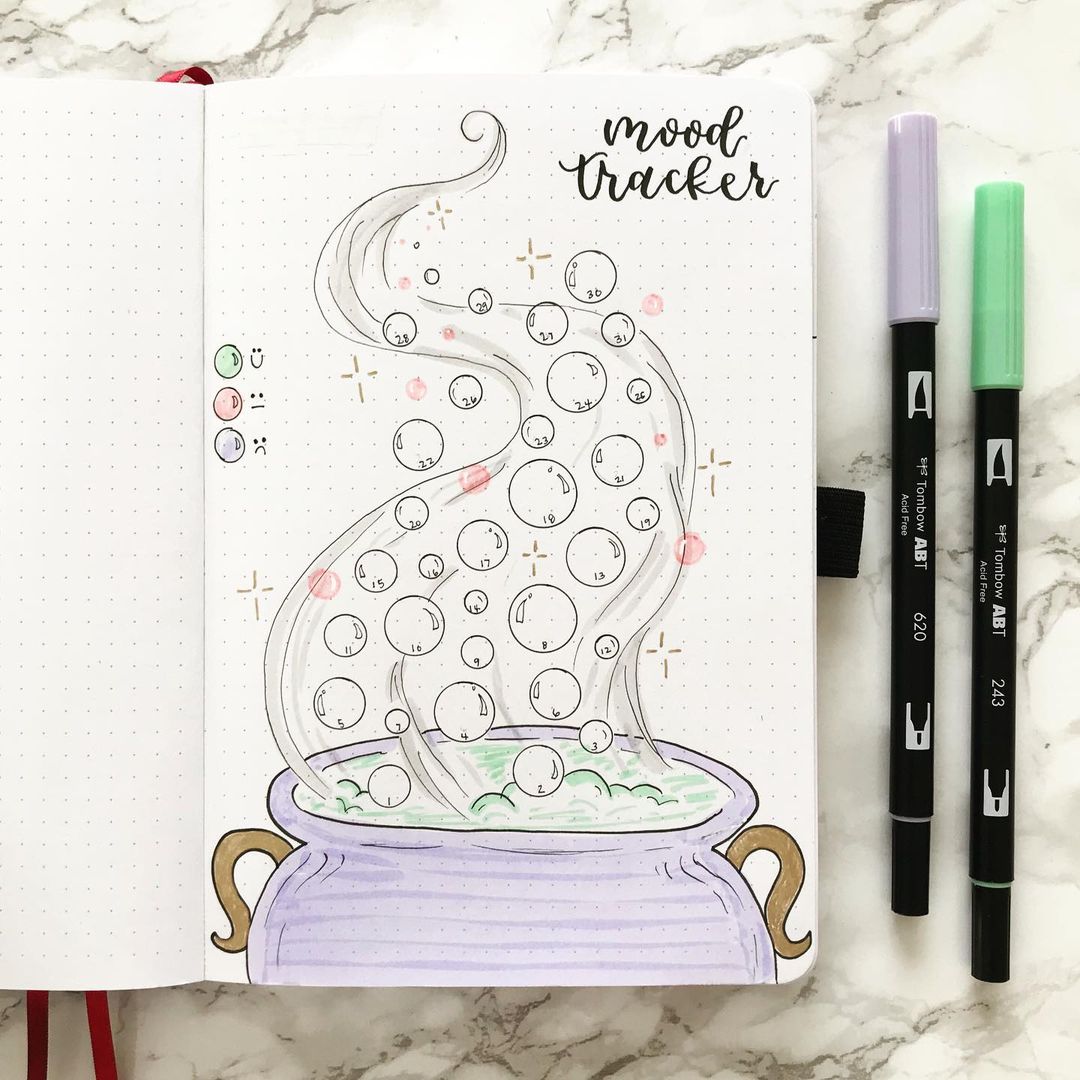 mood
tracker
30
29
28
27
31
26
24
25
23
22
21
18
20
19
17
13
15
16
14
11
10
8
12
9
5
6
7
4
3
1
2
Tombow ABT
Acid Free
620
Tombow ABT
Acid Free
243